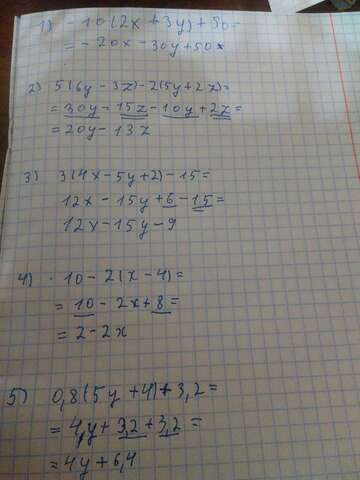 1) -10(2x + 3y) + 50=
= -20x - 30y + 50x
2) 5(6y - 3x) - 2(5y + 2x) =
= 30y - 15x - 10y + 2x =
= 20y - 13x
3) 3(4x - 5y + 2) - 15 =
12x - 15y + 6 - 15 =
12x - 15y - 9
4) 10 - 2(x - 4) =
= 10 - 2x + 8 =
= 2 - 2x
5) 0,8(5y + 4) + 3,2 =
= 4y + 3,2 + 3,2 =
= 4y + 6,4